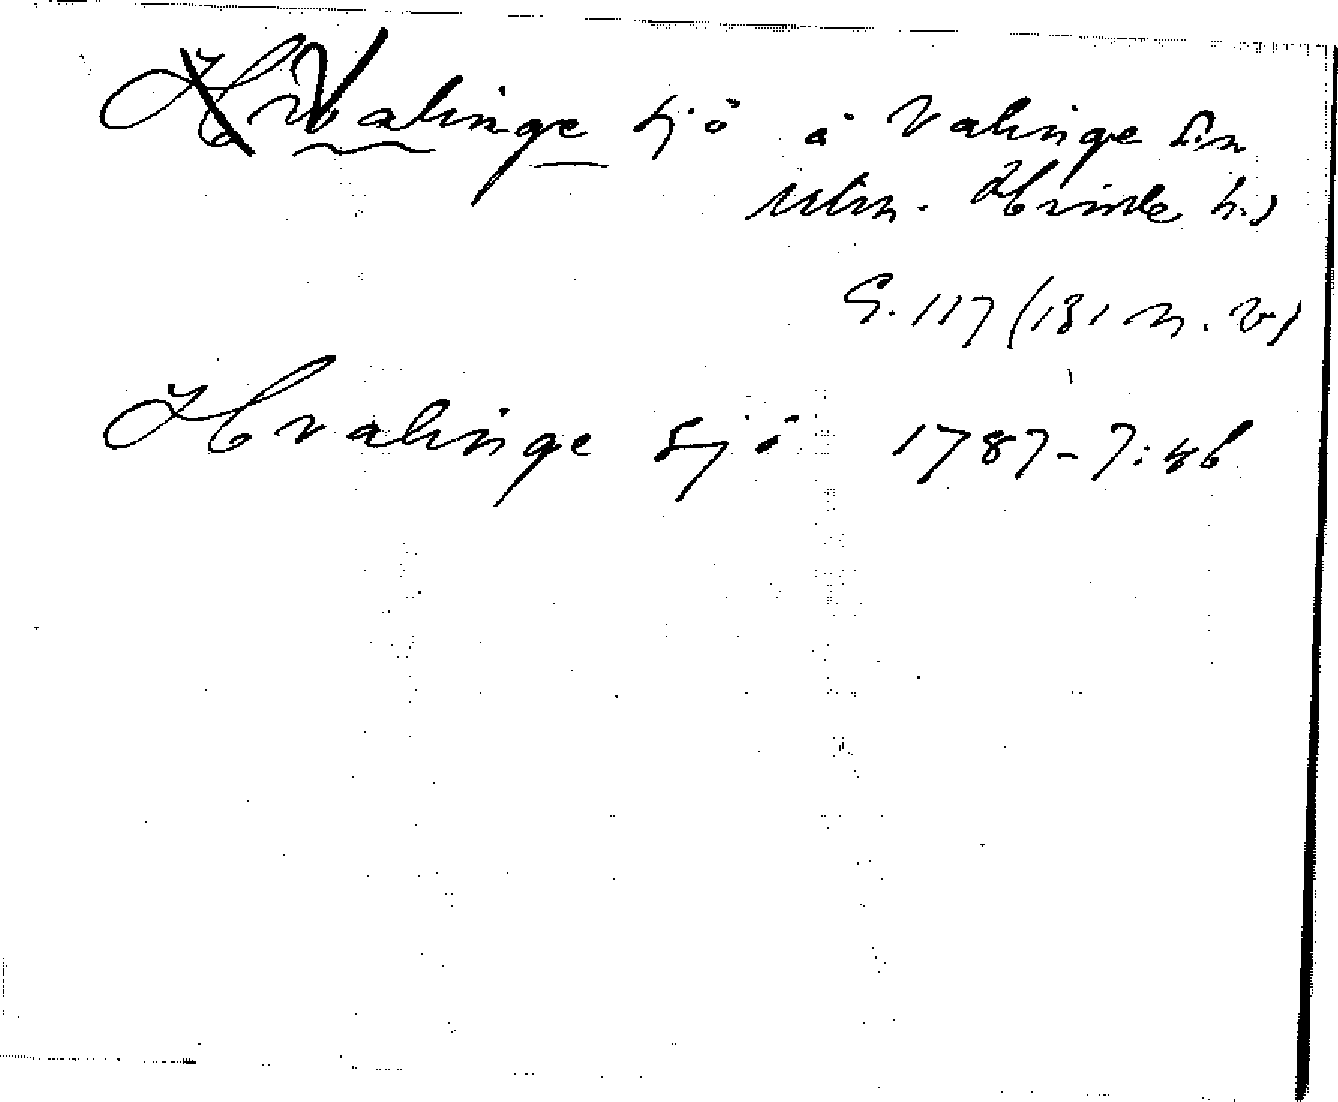 Hvalinge sjö å Valinge sn
utm. Himle h.)
G. 117 (131 n. v)
Hvalinge sjö 1787-7:46